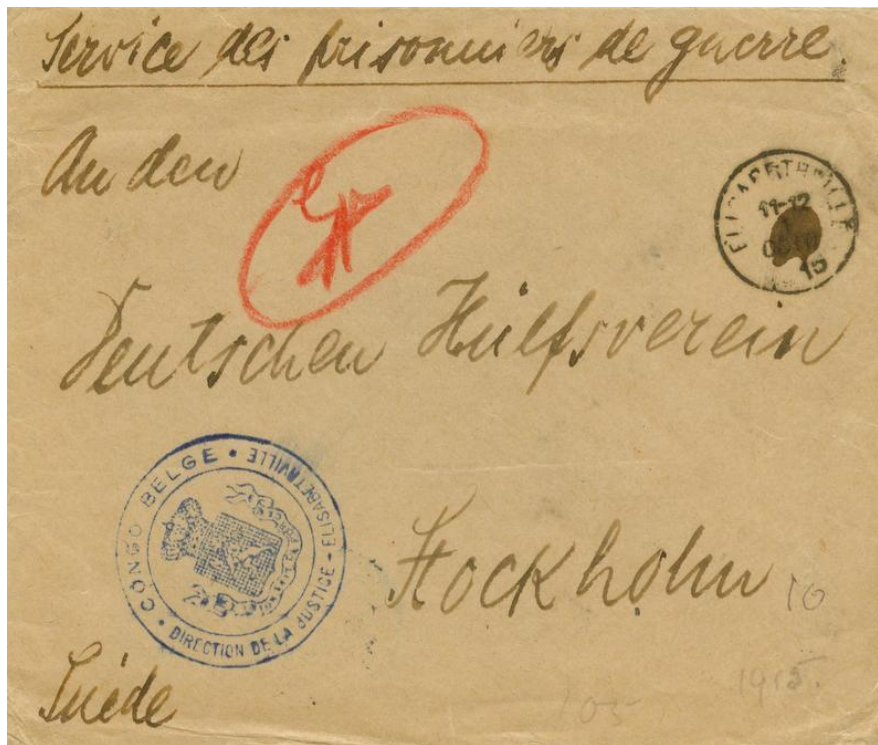 Service des prisonniers de guerre.
An den
ELISABETHVILLE
11-12
15
Deutschen Hülfsverein
CONGO BELGE • ELISABETHVILLE - DIRECTION DE LA JUSTICE •
Stockholm
10
1915.
105
Suède